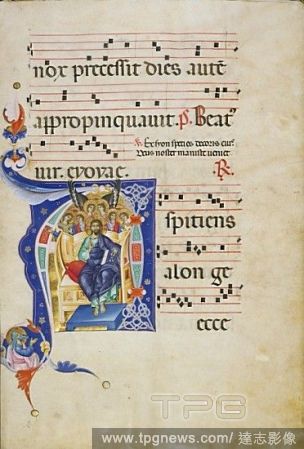 nox precessit dies autē
appropinquavit. p̄. Beat᷒
Ex syon species decoris eius
Deus noster manifeste veniet
vir. evovae. R
spitiens
a lon ge
ecce
TPG
www.tpgnews.com/ 達志影像